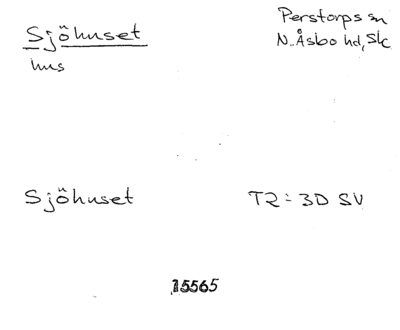 Sjöhuset
Perstorps sn
hus
N. Åsbo hd, Sk
Sjöhuset
T2 : 3D SV
15565